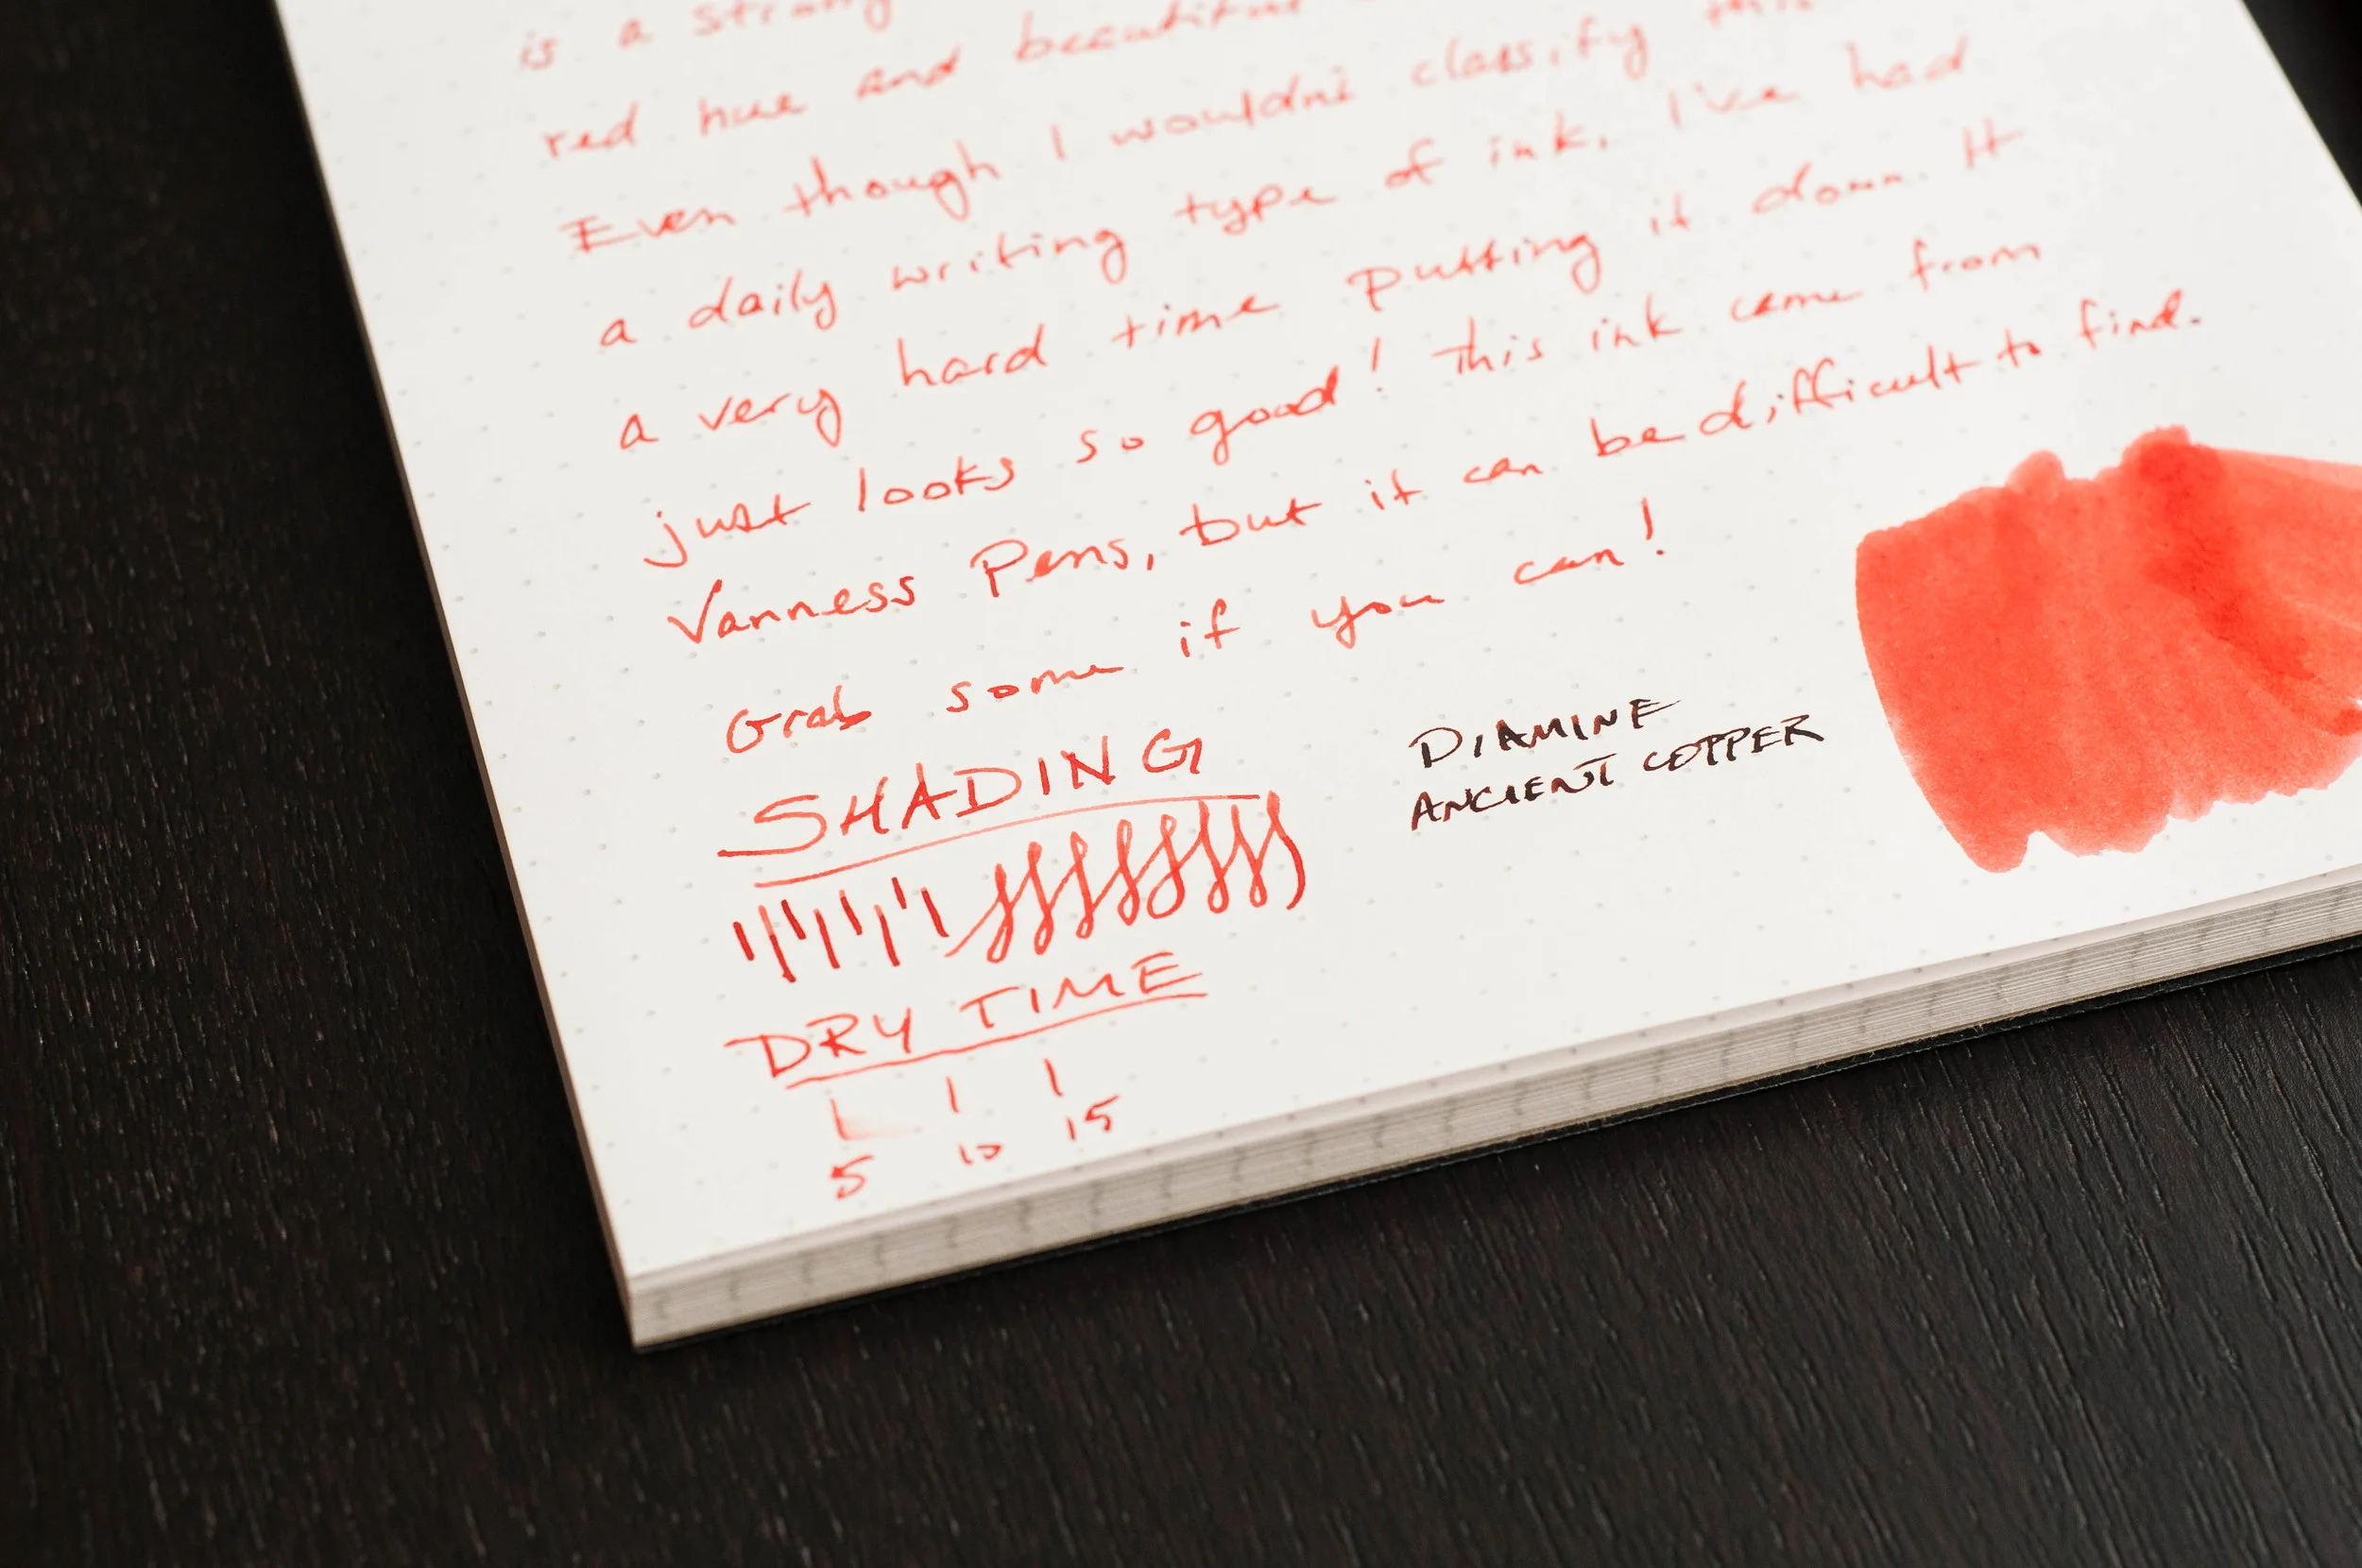 is a strong
red hue and beautiful
Even though I wouldn't classify this
a daily writing type of ink, I've had
a very hard time putting it down. It
just looks so good! This ink came from
Vanness Pens, but it can be difficult to find.
Grab some if you can!
SHADING
DIAMINE
ANCIENT COPPER
DRY TIME
5 10 15